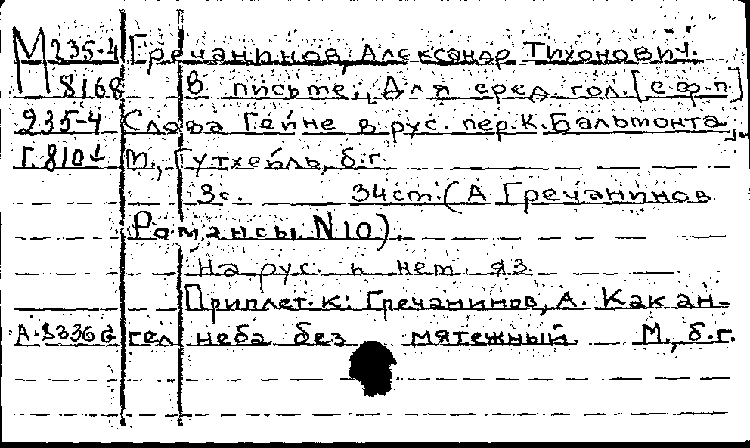 М 235-4 Гречанинов, Александр Тихонович.
8168 В письме,. Для сред. гол. [с ф-п]
235-4 Слова Гейне в рус. пер. К. Бальмонта
Г.810 М., Гутхейль, б.г.
3с. 34ст. (А Гречанинов
Романсы N10).
На рус. и нем. яз.
Приплет. к: Гречанинов, А. Как ан-
гел неба без мятежный. М., б.г.